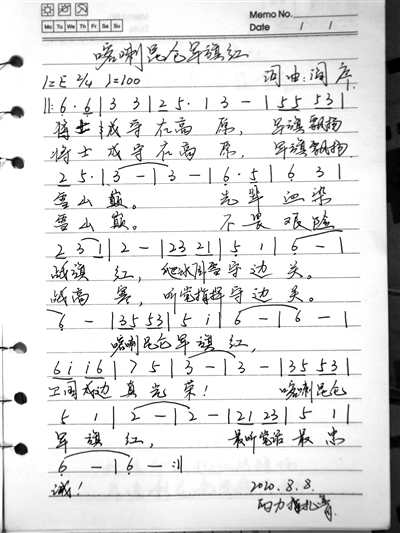 Memo No.
Mo Tu We Th Fr Sa Su
Date / /
喀喇昆仑军旗红
1=E 2/4 ♩=100 词曲:洞庠
‖: 6· 6 | 3 3 | 2 5· | 3 - | 5 5 5 3 |
将士戍守在高原, 军旗飘扬
将士戍守在高原, 军旗飘扬
2 5· | 3 - | 3 - | 6· 5 | 6 3 |
雪山巅。 先辈血染
雪山巅。 不畏艰险
2 3 1 | 2 - | 2 3 2 1 | 5 1 | 6 - |
战旗红, 爬冰卧雪守边关。
战高寒, 听党指挥守边关。
6 - | 3 5 5 3 | 5 i | 6 - | 6 - |
喀喇昆仑军旗红,
6 i i 6 | 7 5 | 3 - | 3 - | 3 5 5 3 |
卫国戍边真光荣! 喀喇昆仑
5 1 | 2 - | 2 - | 2 1 2 3 | 5 1 |
军旗红, 最听党话最忠
6 - | 6 - :‖
诚!
2020.8.8.